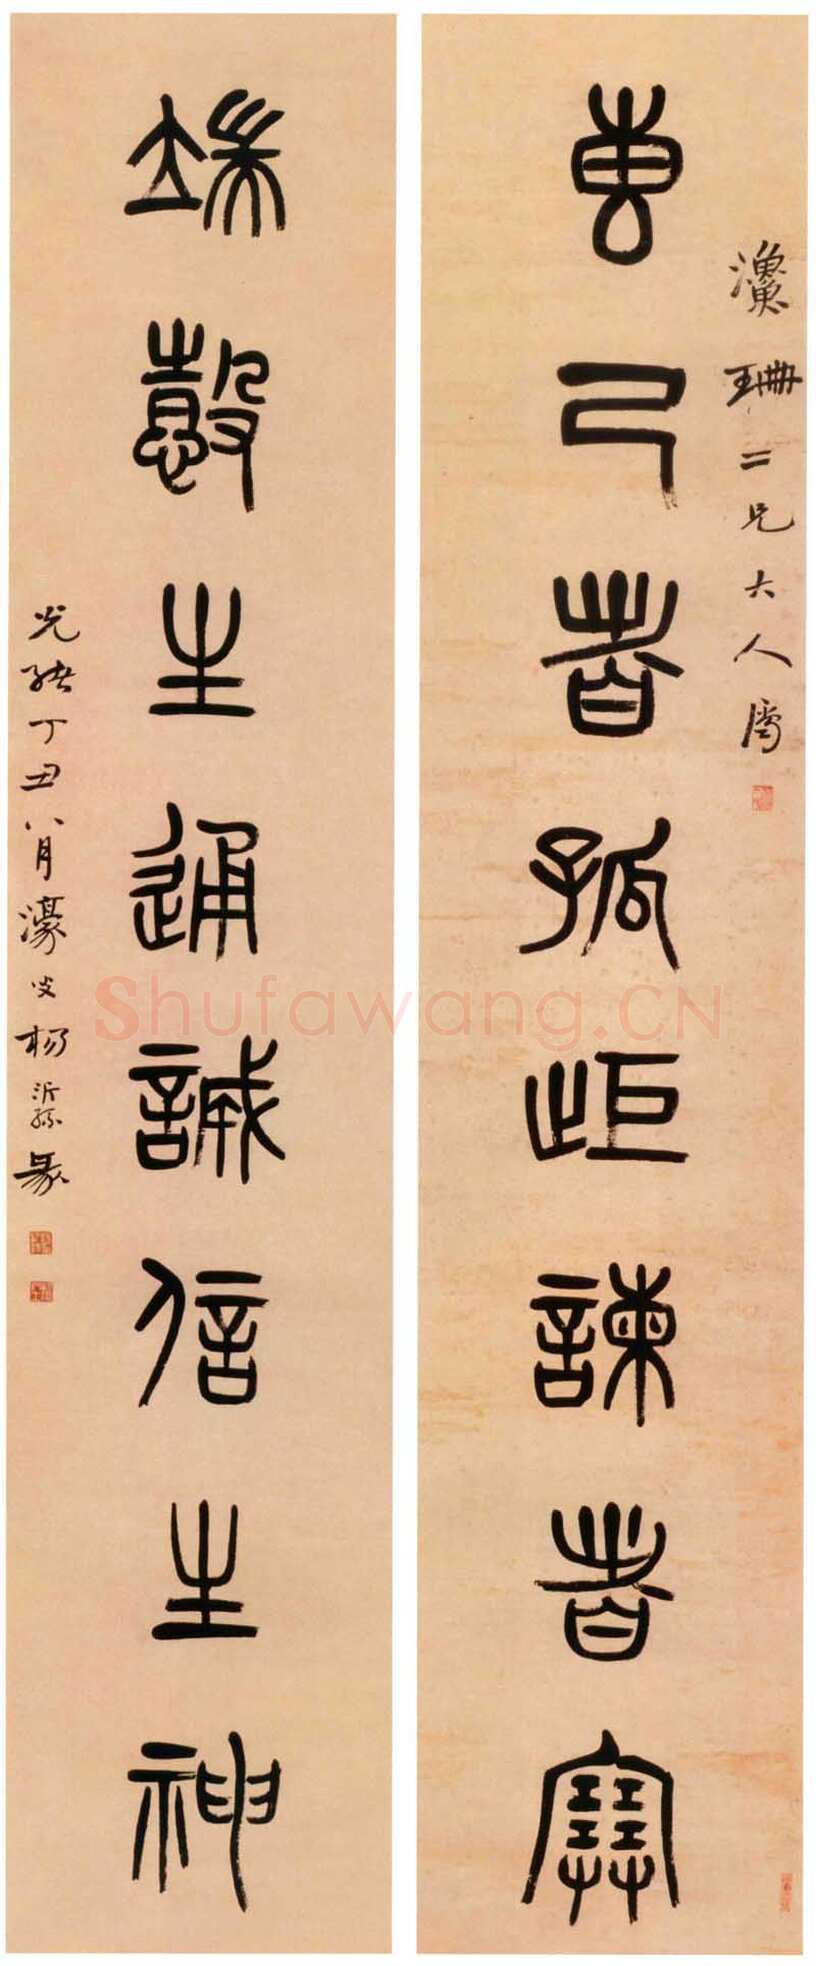 專己者孤歫諫者塞
漁珊二兄大人屬
端愨生通誠信生神
光緒丁丑八月濠叟楊沂孫篆
Shufawang.CN